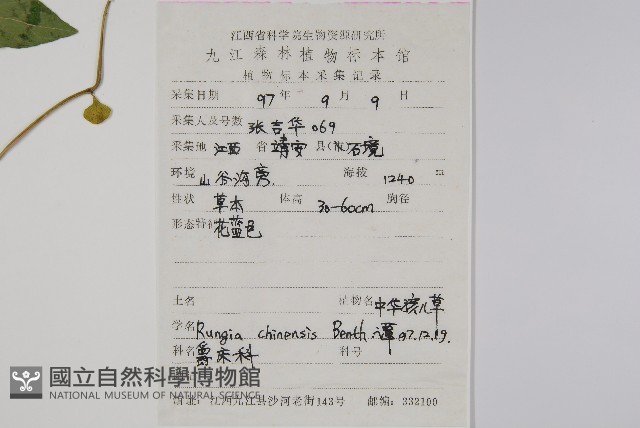 江西省科学院生物资源研究所
九江森林植物标本馆
植物标本采集记录
采集日期 97 年 9 月 9 日
采集人及号数 张吉华 069
采集地 江西 省 靖安 县 石境
环境 山谷沟旁 海拔 1240 m
性状 草本 体高 30-60cm 胸径
形态特征 花蓝色
土名 植物名 中华孩儿草
学名 Rungia chinensis Benth. 谭 97.12.19.
科名 爵床科 科号
國立自然科學博物館
NATIONAL MUSEUM OF NATURAL SCIENCE
地址: 江西九江县沙河老街143号 邮编: 332100